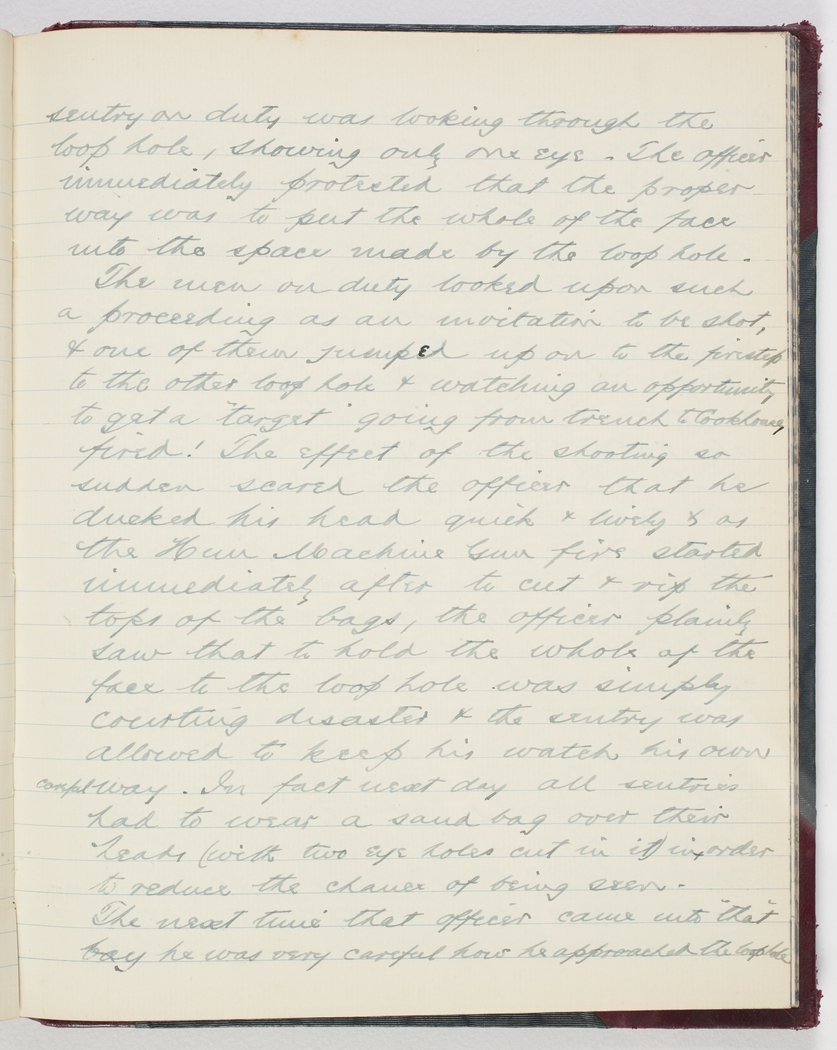 sentry on duty was looking through the
loop hole, showing only one eye. The officer
immediately protested that the proper
way was to put the whole of the face
into the space made by the loop hole.
The men on duty looked upon such
a proceeding as an invitation to be shot,
& one of them jumped up on to the firestep
to the other loop hole & watching an opportunity
to get a "target" going from trench to Cookhouse,
fired! The effect of the shooting so
sudden scared the officer that he
ducked his head quick & lively & as
the Hun Machine Gun fire started
immediately after to cut & rip the
tops of the bags, the officer plainly
saw that to hold the whole of the
face to the loop hole was simply
courting disaster & the sentry was
allowed to keep his watch his own
careful way. In fact next day all sentries
had to wear a sand bag over their
heads (with two eye holes cut in it) in order
to reduce the chance of being seen.
The next time that officer came into "that"
bay he was very careful how he approached the loop hole